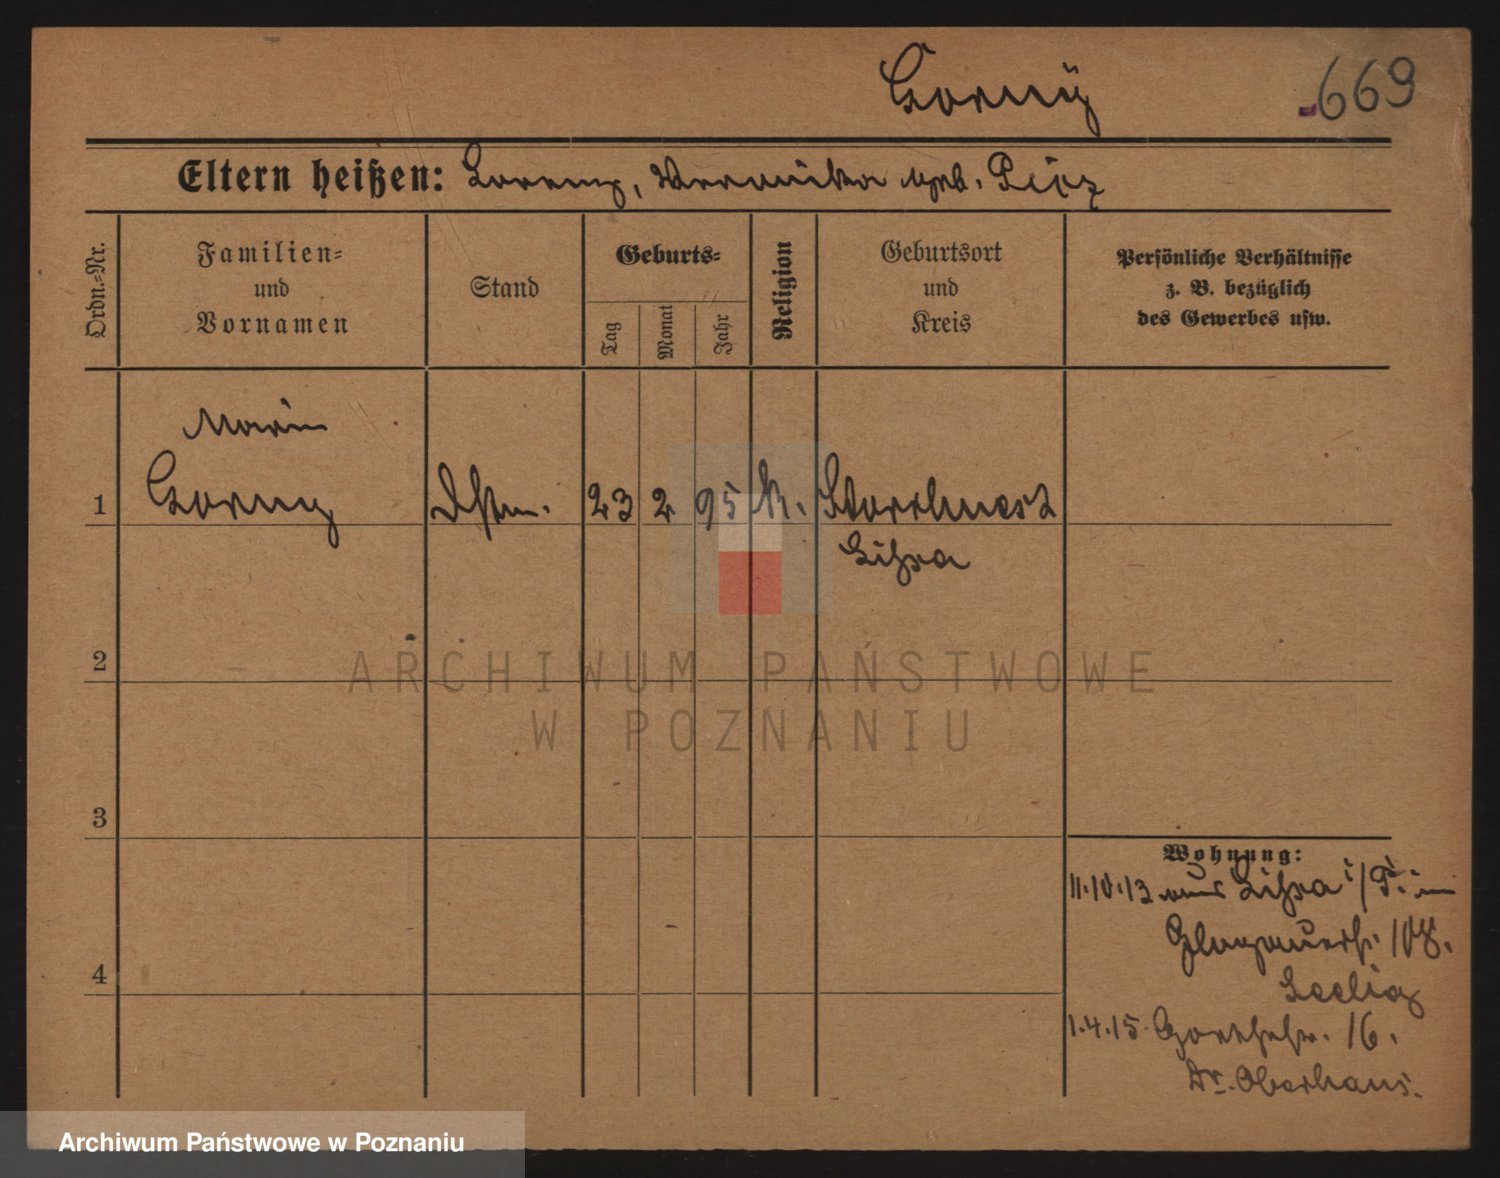 Gorny
669
Eltern heißen: Lorenz, Veronika geb.
Ordn.-Nr.
Familien-
und
Vornamen
Stand
Geburts-
Tag
Monat
Jahr
Religion
Geburtsort
und
Kreis
Persönliche Verhältnisse
z. B. bezüglich
des Gewerbes usw.
Marie
1 Gorny Dstm. 23 2 95 k. Storchnest
Lissa
2
ARCHIWUM PAŃSTWOWE
W POZNANIU
3
Wohnung:
11.10.13 aus Lissa i/P. in
Glogauerstr. 108.
Seelig
4
1.4.15 Goethestr. 16.
Dr. Oberhaus.
Archiwum Państwowe w Poznaniu